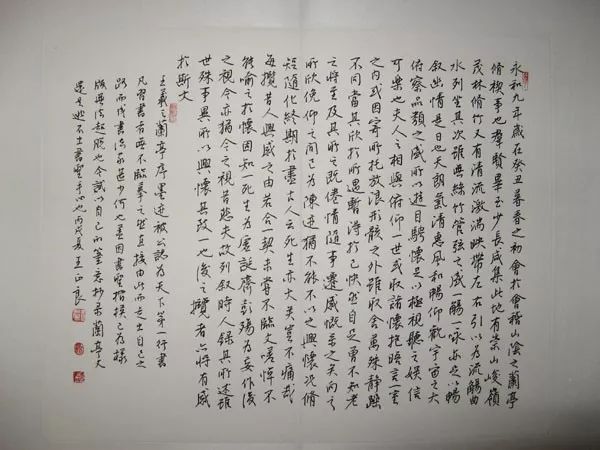 永和九年歲在癸丑暮春之初會於會稽山陰之蘭亭
脩稧事也羣賢畢至少長咸集此地有崇山峻嶺
茂林脩竹又有清流激湍映帶左右引以為流觴曲
水列坐其次雖無絲竹管弦之盛一觴一詠亦足以暢
叙幽情是日也天朗氣清惠風和暢仰觀宇宙之大
俯察品類之盛所以遊目騁懷足以極視聽之娛信
可樂也夫人之相與俯仰一世或取諸懷抱晤言一室
之内或因寄所託放浪形骸之外雖取舍萬殊靜躁
不同當其欣於所遇暫得於己快然自足曾不知老
之將至及其所之既倦情隨事遷感慨係之矣向之
所欣俛仰之間已為陳迹猶不能不以之興懷況脩
短隨化終期於盡古人云死生亦大矣豈不痛哉
每攬昔人興感之由若合一契未嘗不臨文嗟悼不
能喻之於懷固知一死生為虛誕齊彭殤為妄作後
之視今亦猶今之視昔悲夫故列叙時人錄其所述雖
世殊事異所以興懷其致一也後之攬者亦將有感
於斯文
王羲之蘭亭序墨迹被公認為天下第一行書
凡習書者無不臨摹之然直接由此而走出自己之
路而成書法家者少何也蓋因書聖楷模已為樣
版無法超脫也今試以自己的筆意抄录蘭亭文
還是逃不出書聖手心也丙戌夏王正良